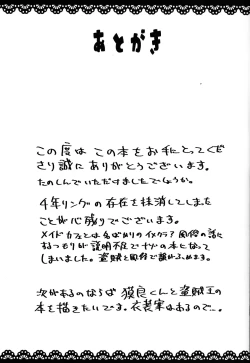 あとがき
この度は この本をお手にとってくだ
さり誠に ありがとうございます。
たのしんでいただけましたでしょうか。
4年リングの存在を抹消してしまった
ことが心残りでございます。
メイドカフェとは名ばかりのイメクラ 風俗の話に
するつもりが説明不足でナゾの本となって
しまいました。盗賊と風俗で謎がふかめる。
次があるのならば 獏良くんと盗賊王の
本を描きたいです。衣装案はあるので…。